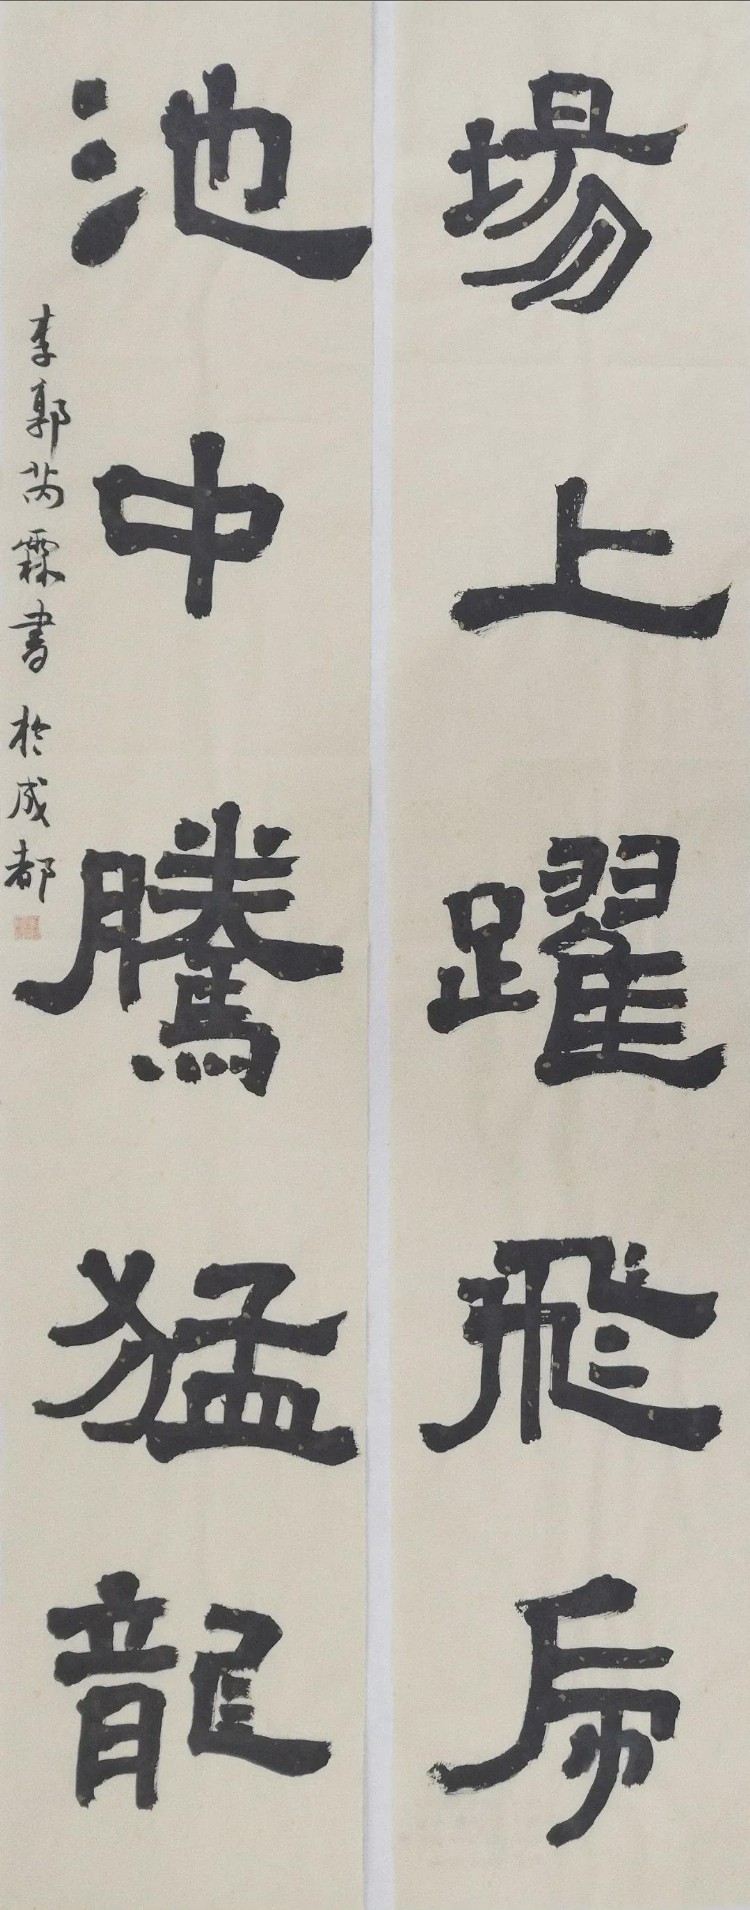 場上躍飛乕
池中騰猛龍
李郭芮霖書於成都